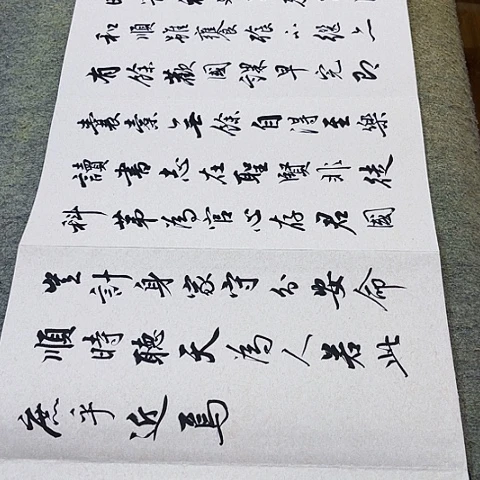 和順雖饔飧不繼亦
有餘歡國課早完即
囊橐無餘自得至樂
讀書志在聖賢非徒
科第為官心存君國
豈計身家守分安命
順時聽天為人若此
庶乎近焉